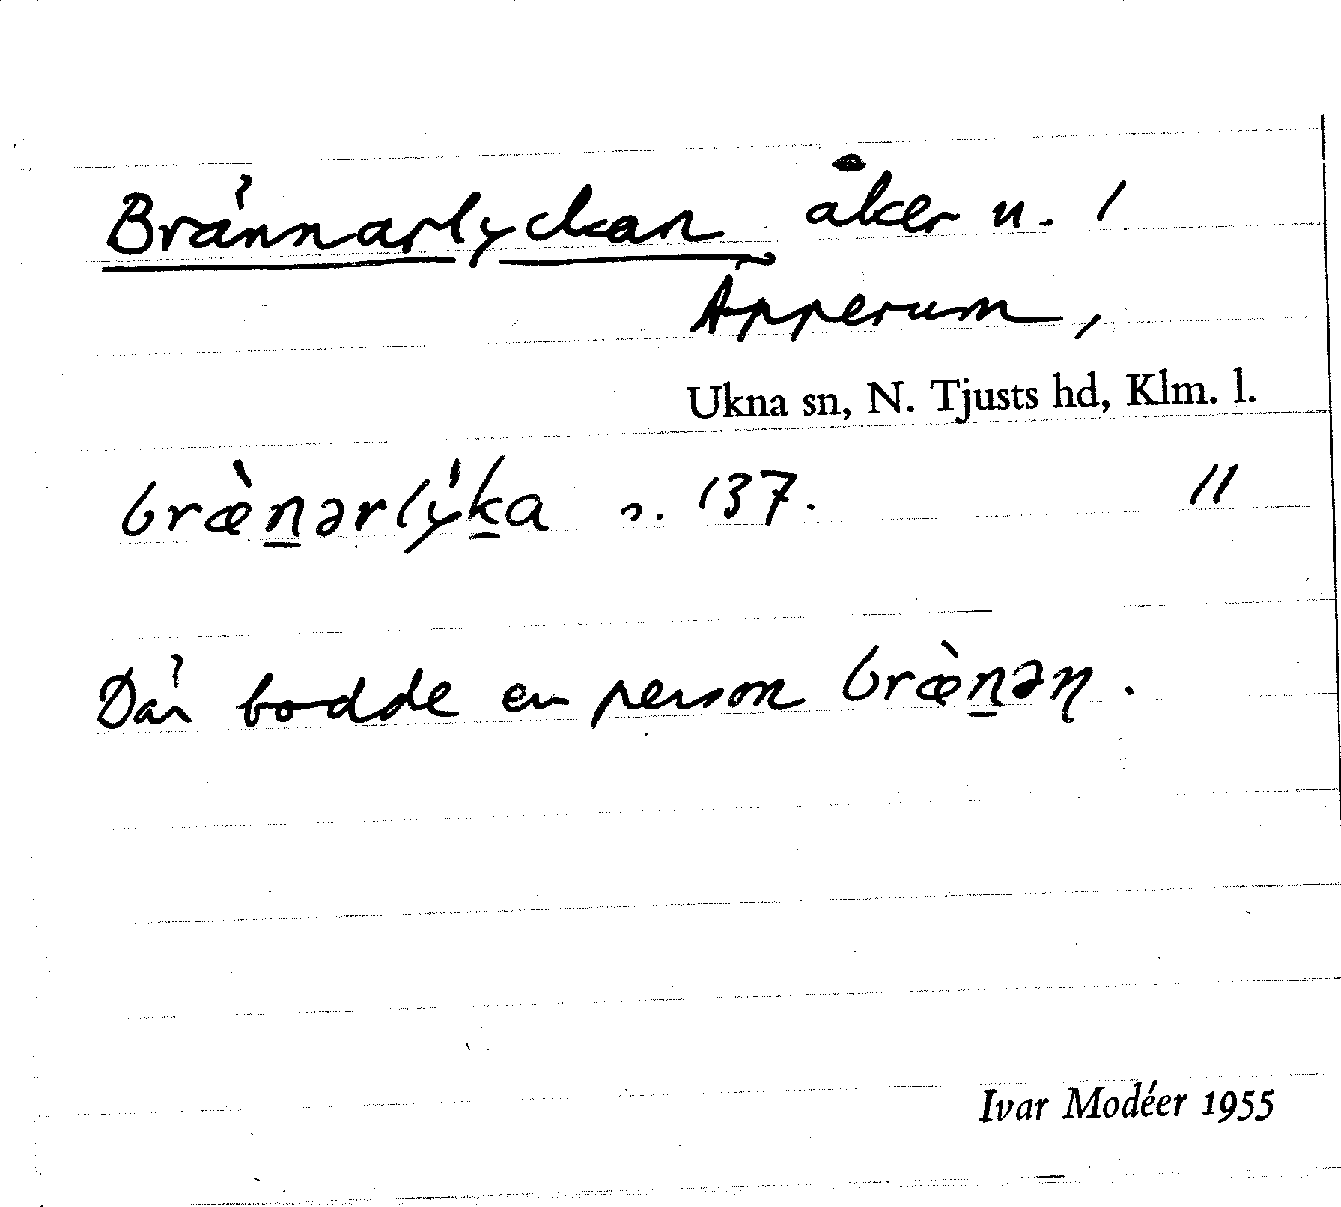 Brännarlyckan åker n. 1
Äpperum,
Ukna sn, N. Tjusts hd, Klm. l.
bræ̀n̠ərlýk̠a s. 137. 11
Där bodde en person bræ̀n̠əη.
Ivar Modéer 1955